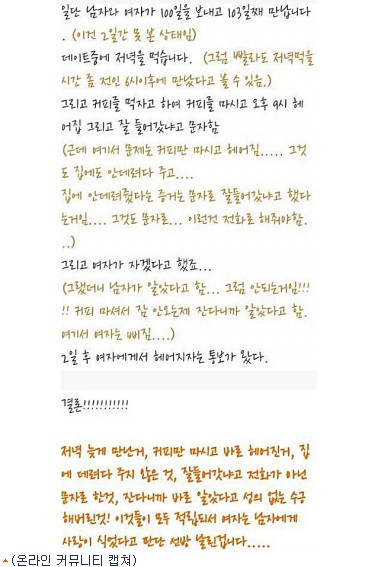 일단 남자와 여자가 100일을 보내고 103일째 만납니다
. (이건 2일간 못 본 상태임)
데이트중에 저녁을 먹습니다. (그럼 빨라도 저녁먹을
시간 좀 전인 6시이후에 만났다고 볼 수 있음.)
그리고 커피를 먹자고 하여 커피를 마시고 오후 9시 헤
어짐 그리고 잘 들어갔냐고 문자함
(근데 여기서 문제는 커피만 마시고 헤어짐..... 그것
도 집에도 안데려다 주고....
집에 안데려줬다는 증거는 문자로 잘들어갔냐고 했다
는거임.... 그것도 문자로... 이런건 전화로 해줘야함.
..)
그리고 여자가 자겠다고 했죠...
(그랬더니 남자가 알았다고 함... 그럼 안되는거임!!!
!! 커피 마셔서 잠 안오는게 잔다니까 알았다고 함.
여기서 여자는 삐짐....)
2일 후 여자에게서 헤어지자는 통보가 왔다.
결론!!!!!!!!!!!
저녁 늦게 만난거, 커피만 마시고 바로 헤어진거, 집
에 데려다 주지 않은 것, 잘들어갔냐고 전화가 아닌
문자로 한것, 잔다니까 바로 알았다고 성의 없는 수긍
해버린것! 이것들이 모두 적립되서 여자는 남자에게
사랑이 식었다고 판단 선방 날린겁니다.....
▲(온라인 커뮤니티 캡쳐)